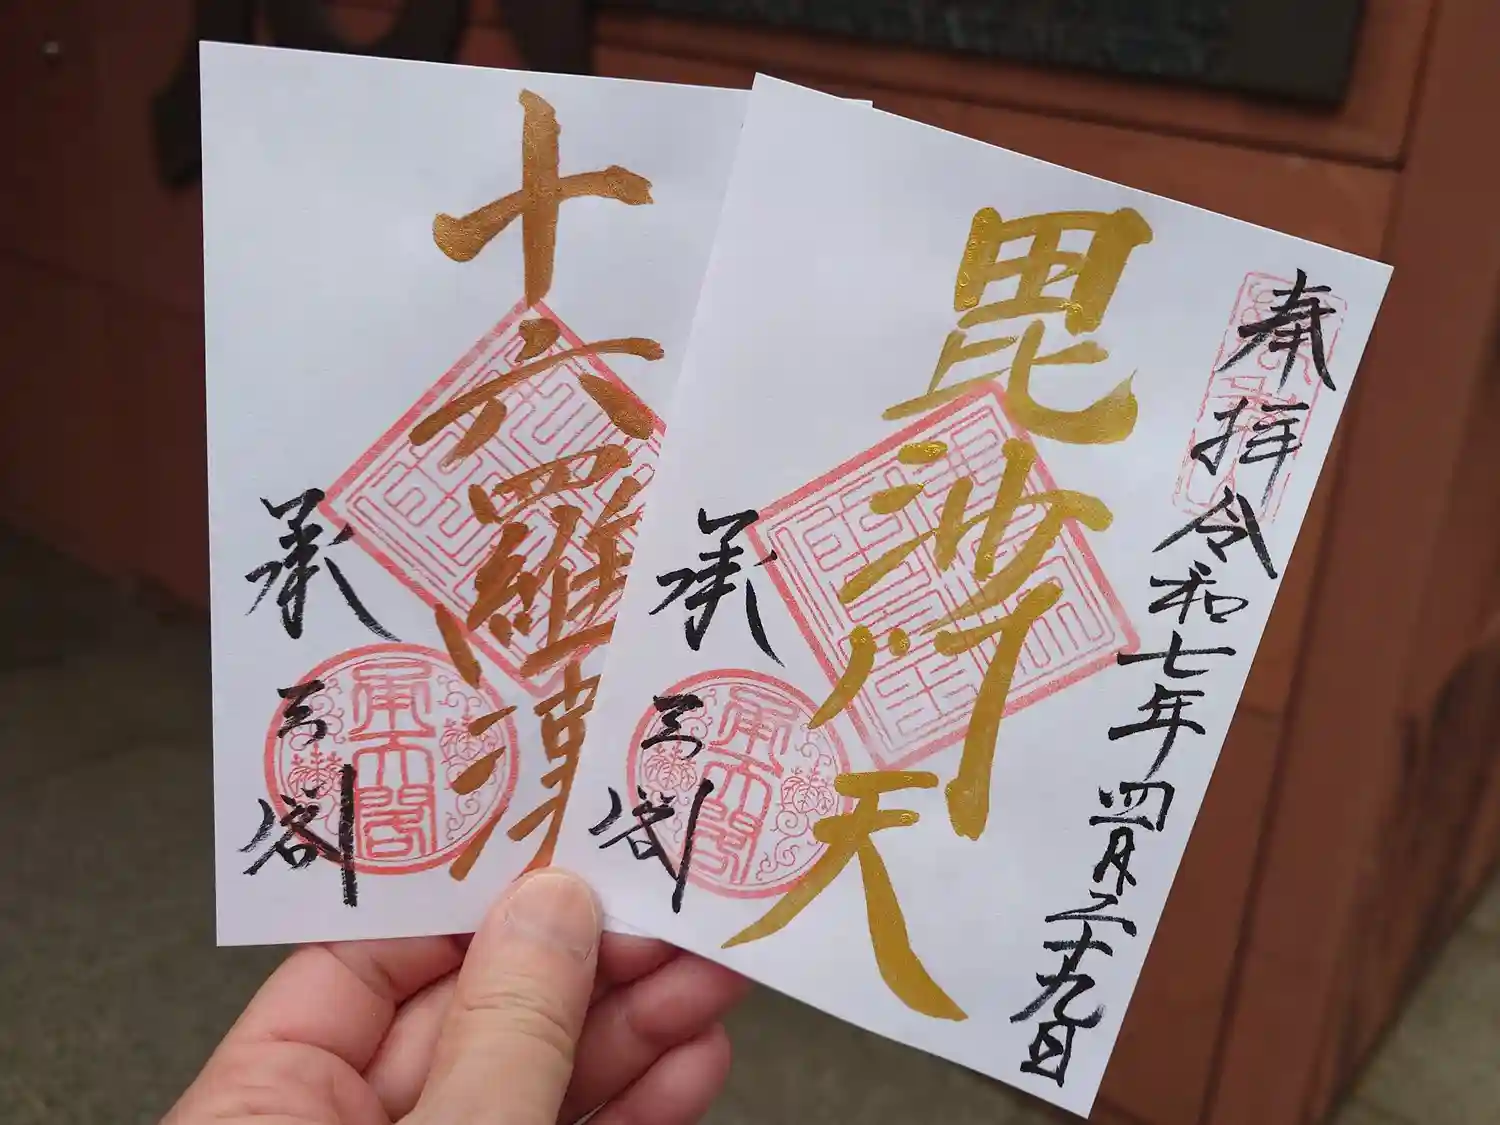 奉拝 令和七年四月二十九日
毘沙門天
承天閣
承天閣
十六羅漢
承天閣
承天閣